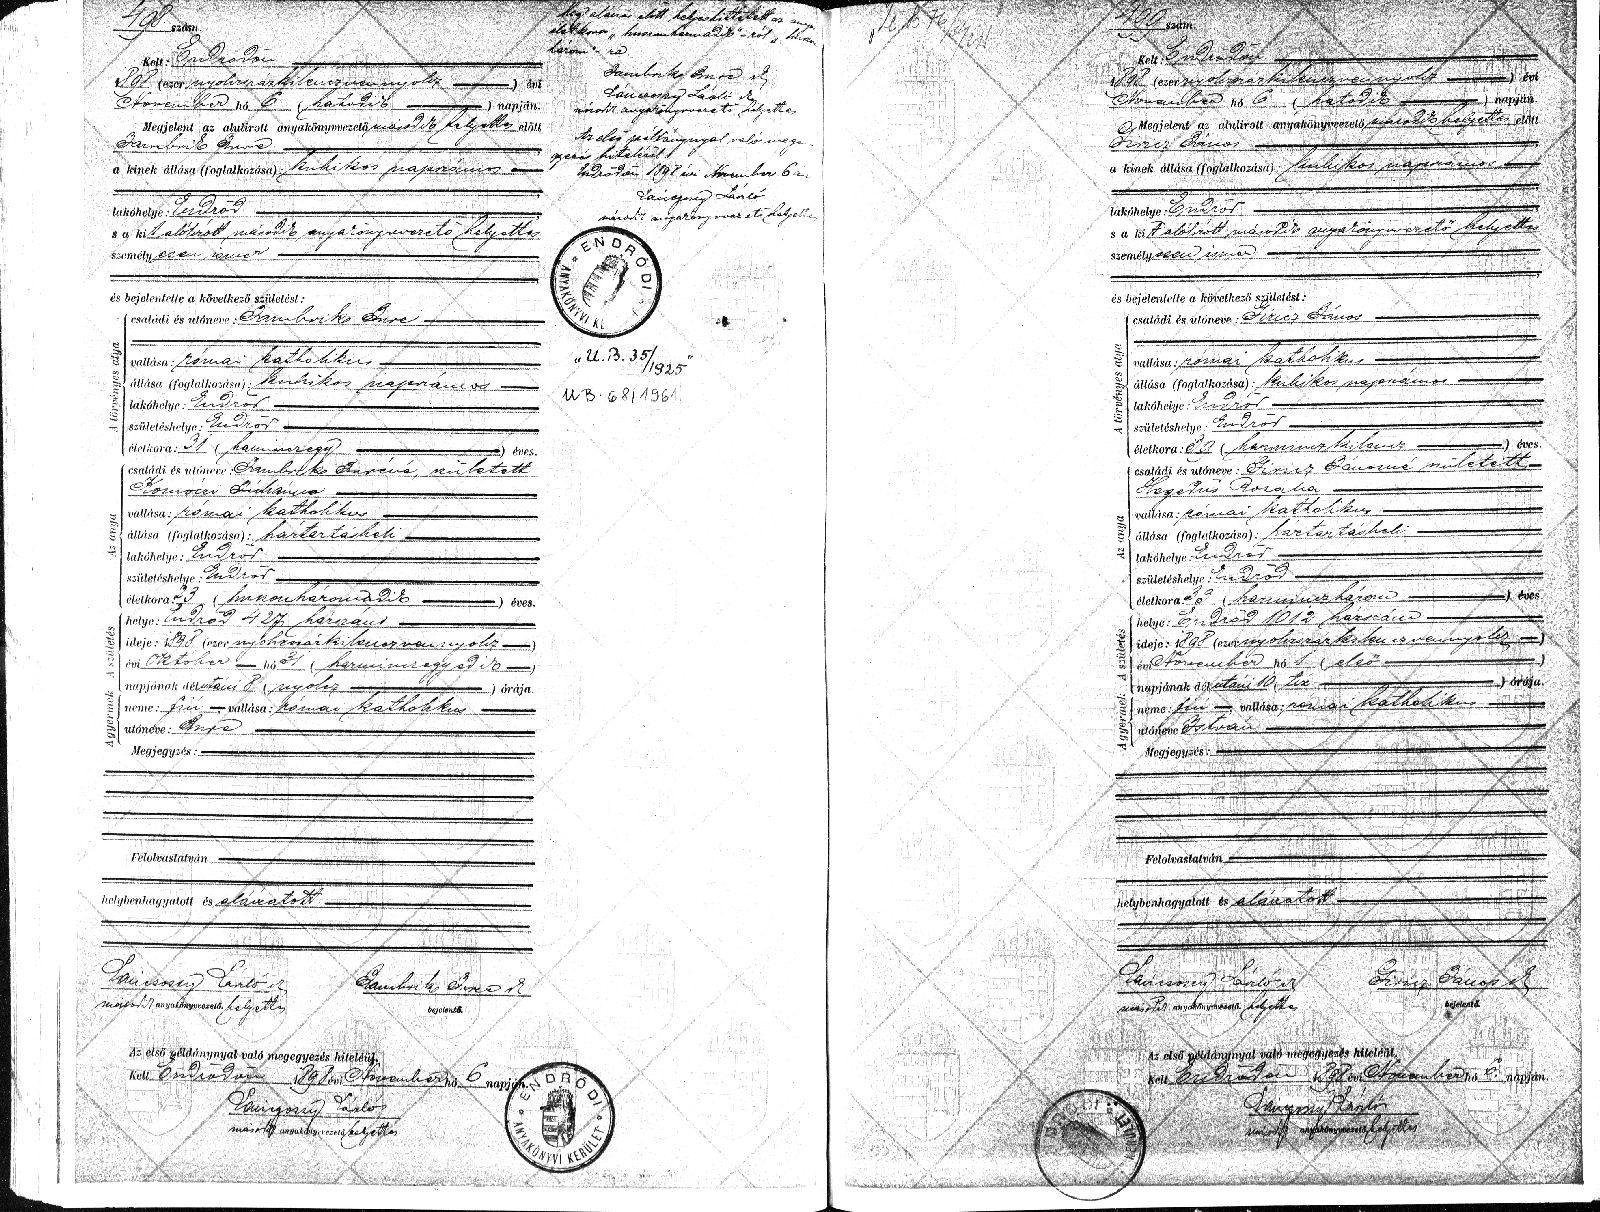 498 szám.
Kelt: Endrődön
1898 (ezer nyolczszázkilenczvennyolcz) évi
November hó 6 (hatodik) napján.
Megjelent az alulirott anyakönyvvezető második helyettes előtt
Imre
a kinek állása (foglalkozása) kubikos napszámos
lakóhelye: Endrőd
s a kit alólirott második anyakönyvvezető helyettes
személyesen ismer
és bejelentette a következő születést:
A törvényes atya
családi és utóneve: Imre
vallása: római katholikus
állása (foglalkozása): kubikos napszámos
lakóhelye: Endrőd
születéshelye: Endrőd
életkora: 31 (harminczegy) éves.
Az anya
családi és utóneve: Imréné, született
vallása: római katholikus
állása (foglalkozása): háztartásbeli
lakóhelye: Endrőd
születéshelye: Endrőd
életkora: 23 (huszonharmadik) éves.
A születés
helye: Endrőd 427 házszám
ideje: 1898 (ezer nyolczszázkilenczvennyolcz)
évi Október hó 31 (harminczegyedik)
napjának délutáni 8 (nyolcz) órája.
A gyermek
neme: fiú, vallása: római katholikus
utóneve: Imre
Megjegyzés:
Felolvastatván
helybenhagyatott és aláiratott
László sk
másod anyakönyvvezető helyettes
Imre sk
bejelentő.
Az első példánynyal való megegyezés hiteléül,
Kelt Endrődön 1898 évi November hó 6 napján.
László
másod anyakönyvvezető helyettes
ENDRŐDI
ANYAKÖNYVI KERÜLET
előtt helyesbíttetett az anya
életkora „huszonharmadik"-ról „huszon
három"-ra
Imre sk
László sk
másod anyakönyvvezető helyettes
Az első példánynyal való mege-
gyezés hiteléül
Endrődön 1898 évi November 6-n.
László
másod anyakönyvvezető helyettes
ENDRŐDI
ANYAKÖNYVI
„U.B. 35/1925"
U.B. 68/1961.
499 szám.
Kelt: Endrődön
1898 (ezer nyolczszázkilenczvennyolcz) évi
November hó 6 (hatodik) napján.
Megjelent az alulirott anyakönyvvezető második helyettes előtt
János
a kinek állása (foglalkozása) kubikos napszámos
lakóhelye: Endrőd
s a kit alólirott második anyakönyvvezető helyettes
személyesen ismer
és bejelentette a következő születést:
A törvényes atya
családi és utóneve: János
vallása: római katholikus
állása (foglalkozása): kubikos napszámos
lakóhelye: Endrőd
születéshelye: Endrőd
életkora: 39 (harminczkilencz) éves.
Az anya
családi és utóneve: Jánosné született
Hegedűs Rozalia
vallása: római katholikus
állása (foglalkozása): háztartásbeli
lakóhelye: Endrőd
születéshelye: Endrőd
életkora: 33 (harminczhárom) éves.
A születés
helye: Endrőd 1012 házszám
ideje: 1898 (ezer nyolczszázkilenczvennyolcz)
évi November hó 1 (első)
napjának délutáni 10 tiz) órája.
A gyermek
neme: fiú, vallása: római katholikus
utóneve István
Megjegyzés:
Felolvastatván
helybenhagyatott és aláiratott
László sk
másod anyakönyvvezető helyettes
János sk
bejelentő.
Az első példánynyal való megegyezés hiteléül,
Kelt Endrődön 1898 évi November hó 6. napján.
László
másod anyakönyvvezető helyettes